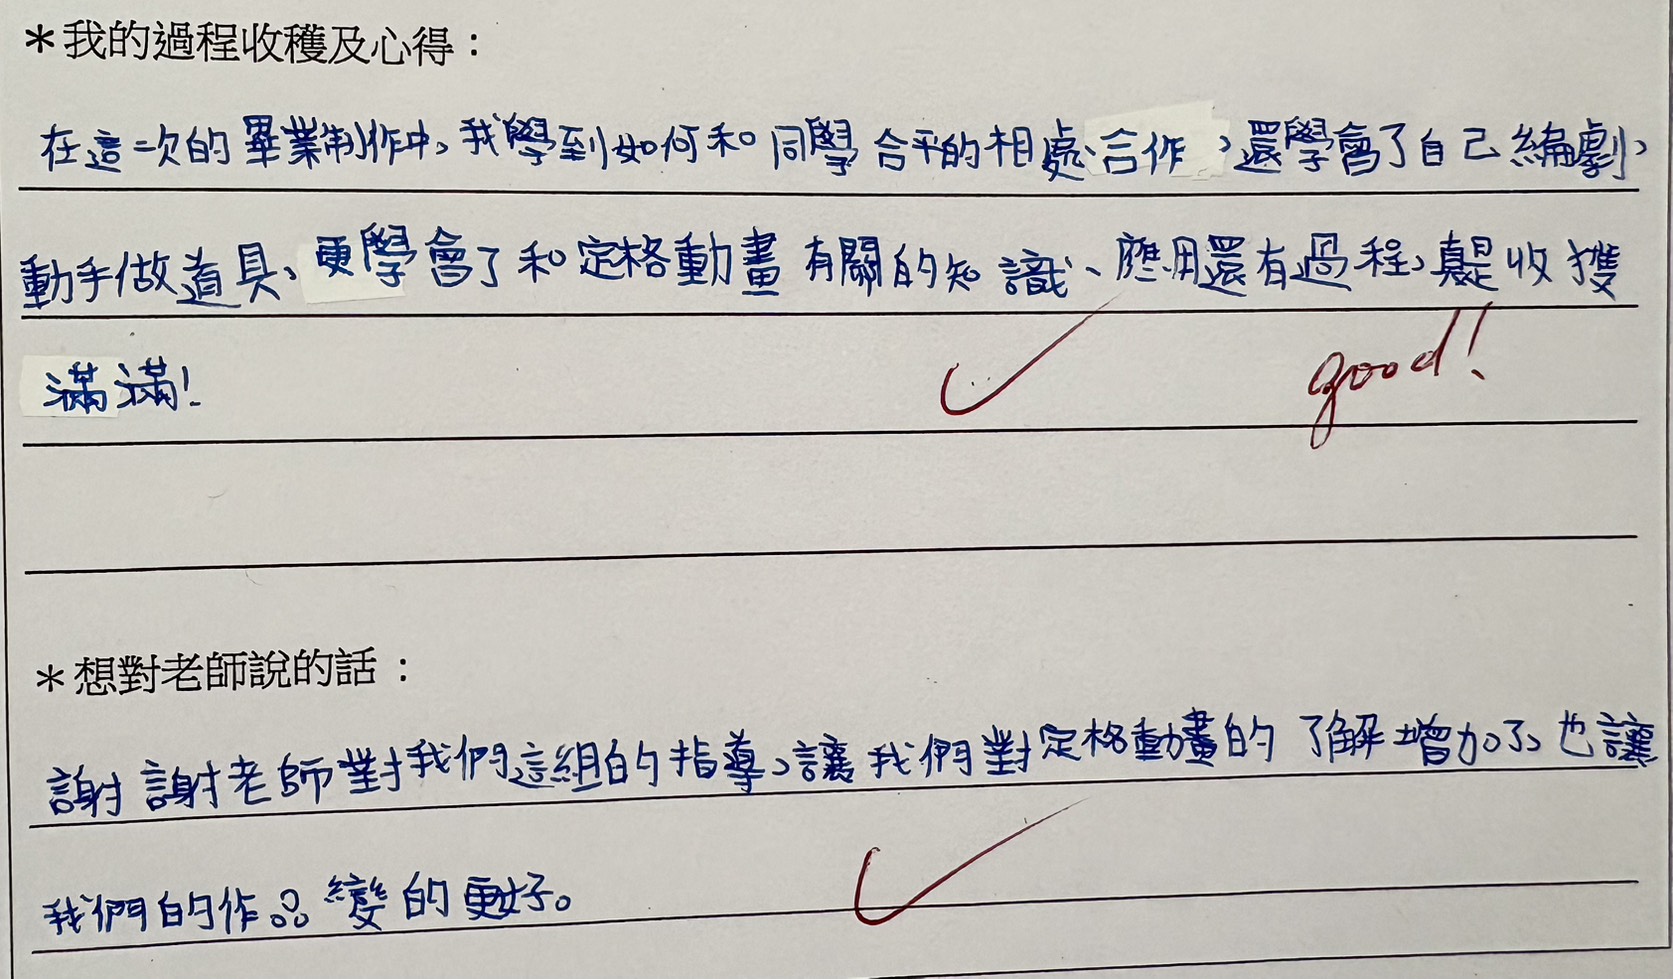 ＊我的過程收穫及心得：
在這一次的畢業制作中，我學到如何和同學合平的相處、合作，還學會了自己編劇、
動手做道具、更學會了和定格動畫有關的知識、應用還有過程，真是收獲
滿滿！
good!
＊想對老師說的話：
謝謝老師對我們這組的指導，讓我們對定格動畫的了解增加了，也讓
我們的作品變的更好。